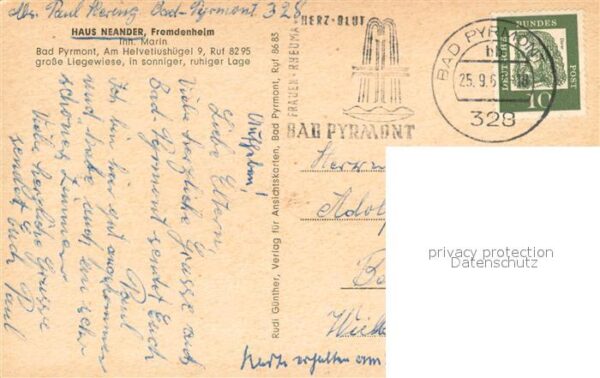 Abs. Paul Hering Bad-Pyrmont 328
HAUS NEANDER, Fremdenheim
Inh. Marin
Bad Pyrmont, Am Helvetiushügel 9, Ruf 8295
große Liegewiese, in sonniger, ruhiger Lage
Liebe Eltern,
Viele herzliche Grüsse aus
Bad-Pyrmont sendet Euch
Paul
Ich bin hier gut angekommen
und habe auch ein sehr
schönes Zimmer
Viele herzliche Grüsse
sendet Euch Paul
Rudi Günther, Verlag für Ansichtskarten, Bad Pyrmont, Ruf 8685
HERZ-BLUT
FRAUEN-RHEUMA
BAD PYRMONT
BAD PYRMONT
25.9.6
18
328
BUNDES
POST
10
Herrn
Adol
Karte erhalten am
privacy protection
Datenschutz